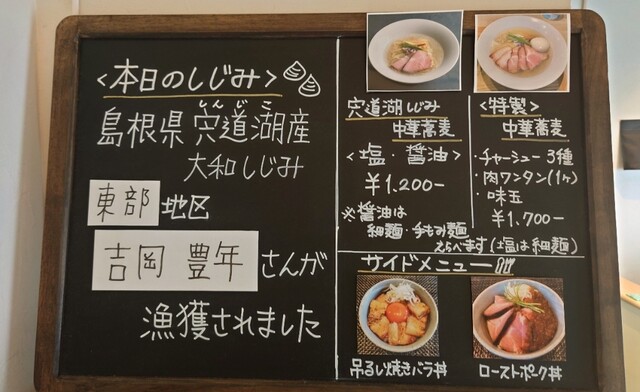 <本日のしじみ>
しんじこ
島根県 宍道湖産
大和しじみ
東部 地区
吉岡 豊年 さんが
漁獲されました
宍道湖しじみ
中華蕎麦
<塩・醤油>
¥1.200-
※醤油は
細麺・手もみ麺
えらべます(塩は細麺)
<特製>
中華蕎麦
・チャーシュー3種
・肉ワンタン(1ヶ)
・味玉
¥1.700-
サイドメニュー
吊るし焼きバラ丼
ローストポーク丼